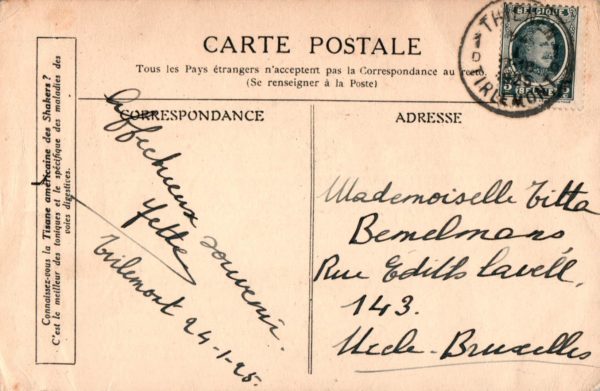 CARTE POSTALE
Tous les Pays étrangers n'acceptent pas la Correspondance au recto.
(Se renseigner à la Poste)
Connaissez-vous la Tisane américaine des Shakers?
C'est le meilleur des toniques et le spécifique des maladies des
voies digestives.
CORRESPONDANCE
Affectueux souvenir.
Yette
Tirlemont 24-1-25.
ADRESSE
Mademoiselle Titta
Bemelmans
Rue Edith Cavell,
143.
Uccle-Bruxelles
TIRLEMONT